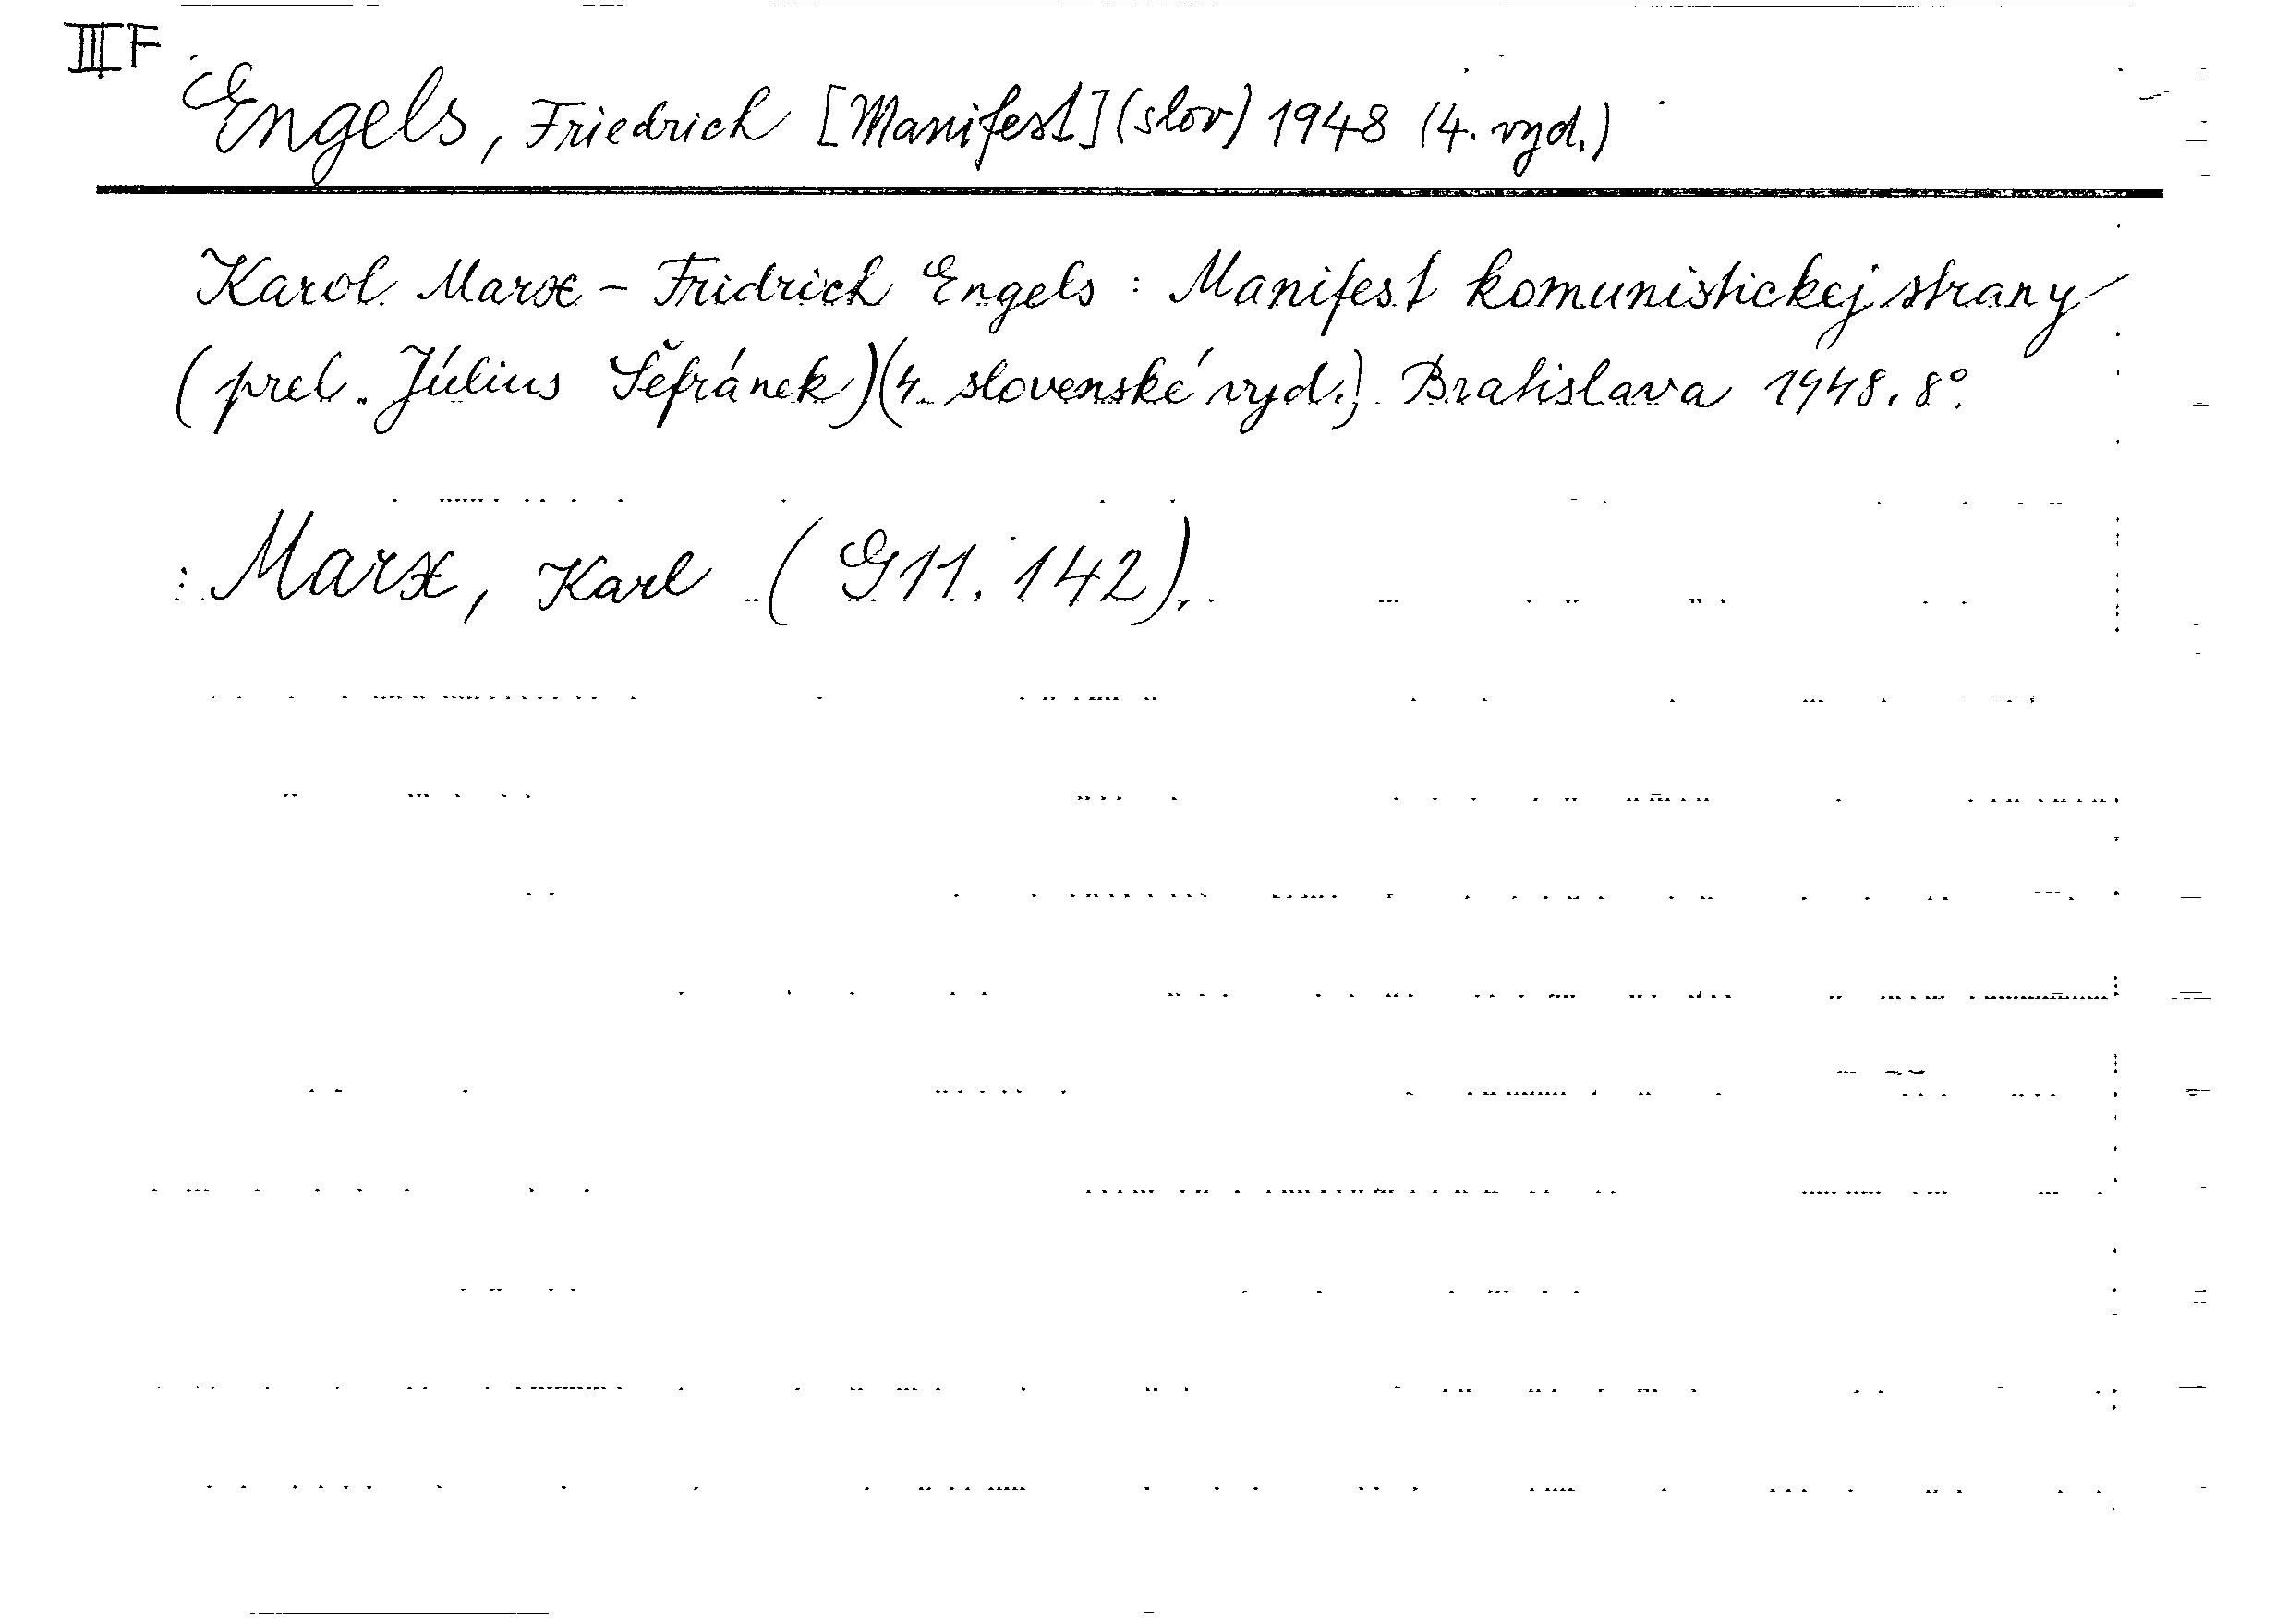 III F
Engels, Friedrich [Manifest] (slov) 1948 (4. vyd.)
Karol Marx - Fridrich Engels : Manifest komunistickej strany
(prel. Július Šefránek) (4. slovenské vyd.). Bratislava 1948. 8°.
: Marx, Karl (G 11. 142).